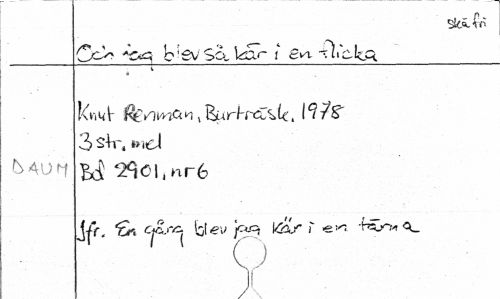 skäfri
Och jag blev så kär i en flicka
Knut Renman, Burträsk, 1978
3 str, mel
DAUM Bd 2901, nr 6
Jfr. En gång blev jag kär i en tärna